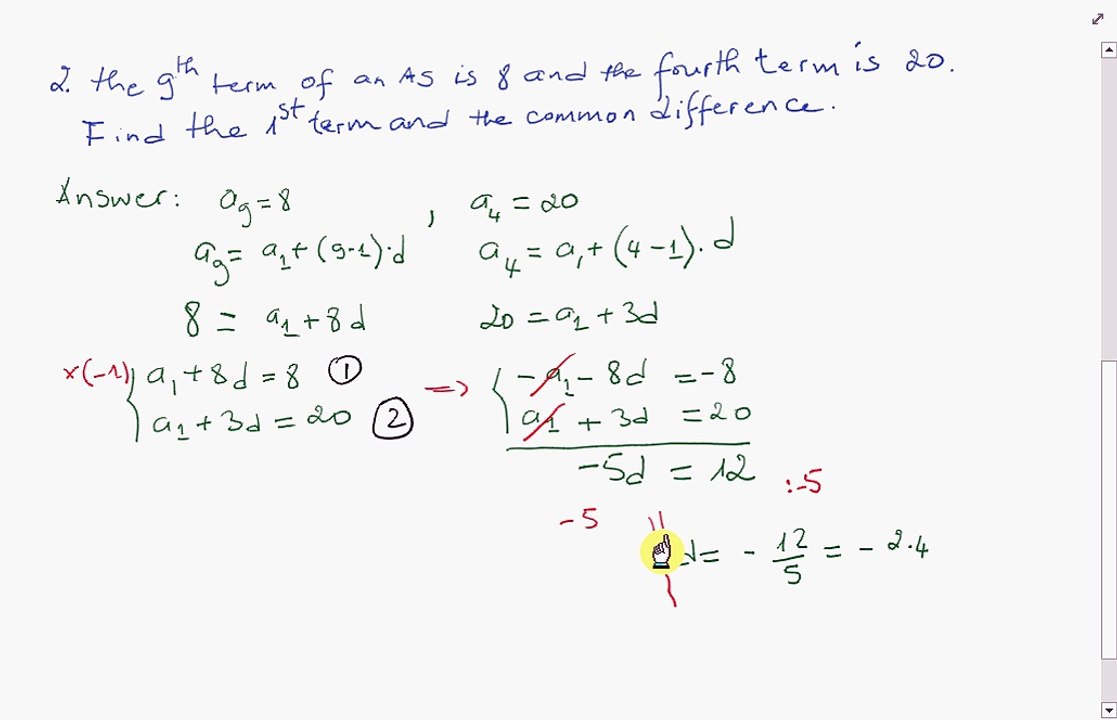 2. the 9th term of an AS is 8 and the fourth term is 20.
Find the 1st term and the common difference.
Answer: a9 = 8 , a4 = 20
a9 = a1 + (9-1)·d a4 = a1 + (4-1)·d
8 = a1 + 8d 20 = a1 + 3d
x(-1) a1 + 8d = 8 ① => -a1 - 8d = -8
a1 + 3d = 20 ② a1 + 3d = 20
-5d = 12 :-5
-5
d = - 12/5 = - 2.4